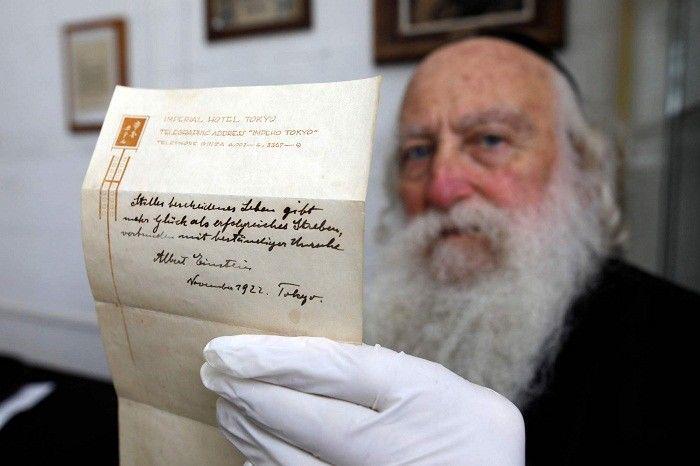 IMPERIAL HOTEL TOKYO
TELEGRAPHIC ADDRESS "IMPEHO TOKYO"
TELEPHONE GINZA
Stilles bescheidenes Leben gibt
mehr Glück als erfolgreiches Streben,
verbunden mit beständiger Unruhe.
Albert Einstein
November 1922. Tokyo.